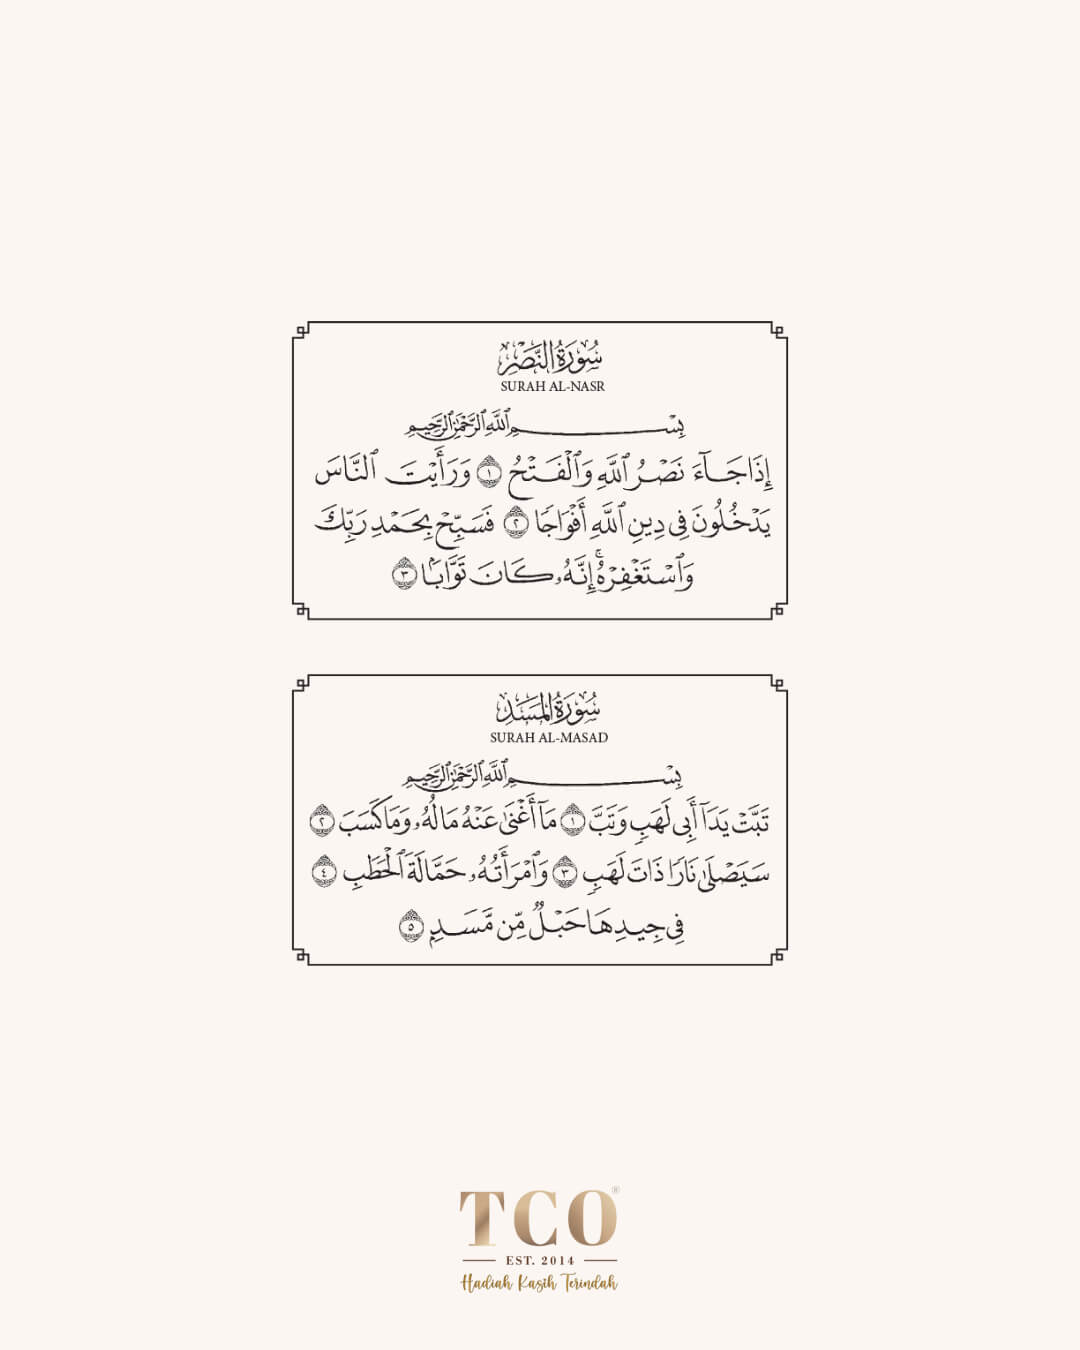 سُورَةُ النَّصْرِ
SURAH AL-NASR
بِسْمِ ٱللَّهِ ٱلرَّحْمَٰنِ ٱلرَّحِيمِ
إِذَا جَآءَ نَصْرُ ٱللَّهِ وَٱلْفَتْحُ ١ وَرَأَيْتَ ٱلنَّاسَ
يَدْخُلُونَ فِى دِينِ ٱللَّهِ أَفْوَاجًا ٢ فَسَبِّحْ بِحَمْدِ رَبِّكَ
وَٱسْتَغْفِرْهُ ۚ إِنَّهُۥ كَانَ تَوَّابًۢا ٣
سُورَةُ المَسَدِ
SURAH AL-MASAD
بِسْمِ ٱللَّهِ ٱلرَّحْمَٰنِ ٱلرَّحِيمِ
تَبَّتْ يَدَآ أَبِى لَهَبٍ وَتَبَّ ١ مَآ أَغْنَىٰ عَنْهُ مَالُهُۥ وَمَا كَسَبَ ٢
سَيَصْلَىٰ نَارًا ذَاتَ لَهَبٍ ٣ وَٱمْرَأَتُهُۥ حَمَّالَةَ ٱلْحَطَبِ ٤
فِى جِيدِهَا حَبْلٌ مِّن مَّسَدٍۭ ٥
TCO®
EST. 2014
Hadiah Kasih Terindah